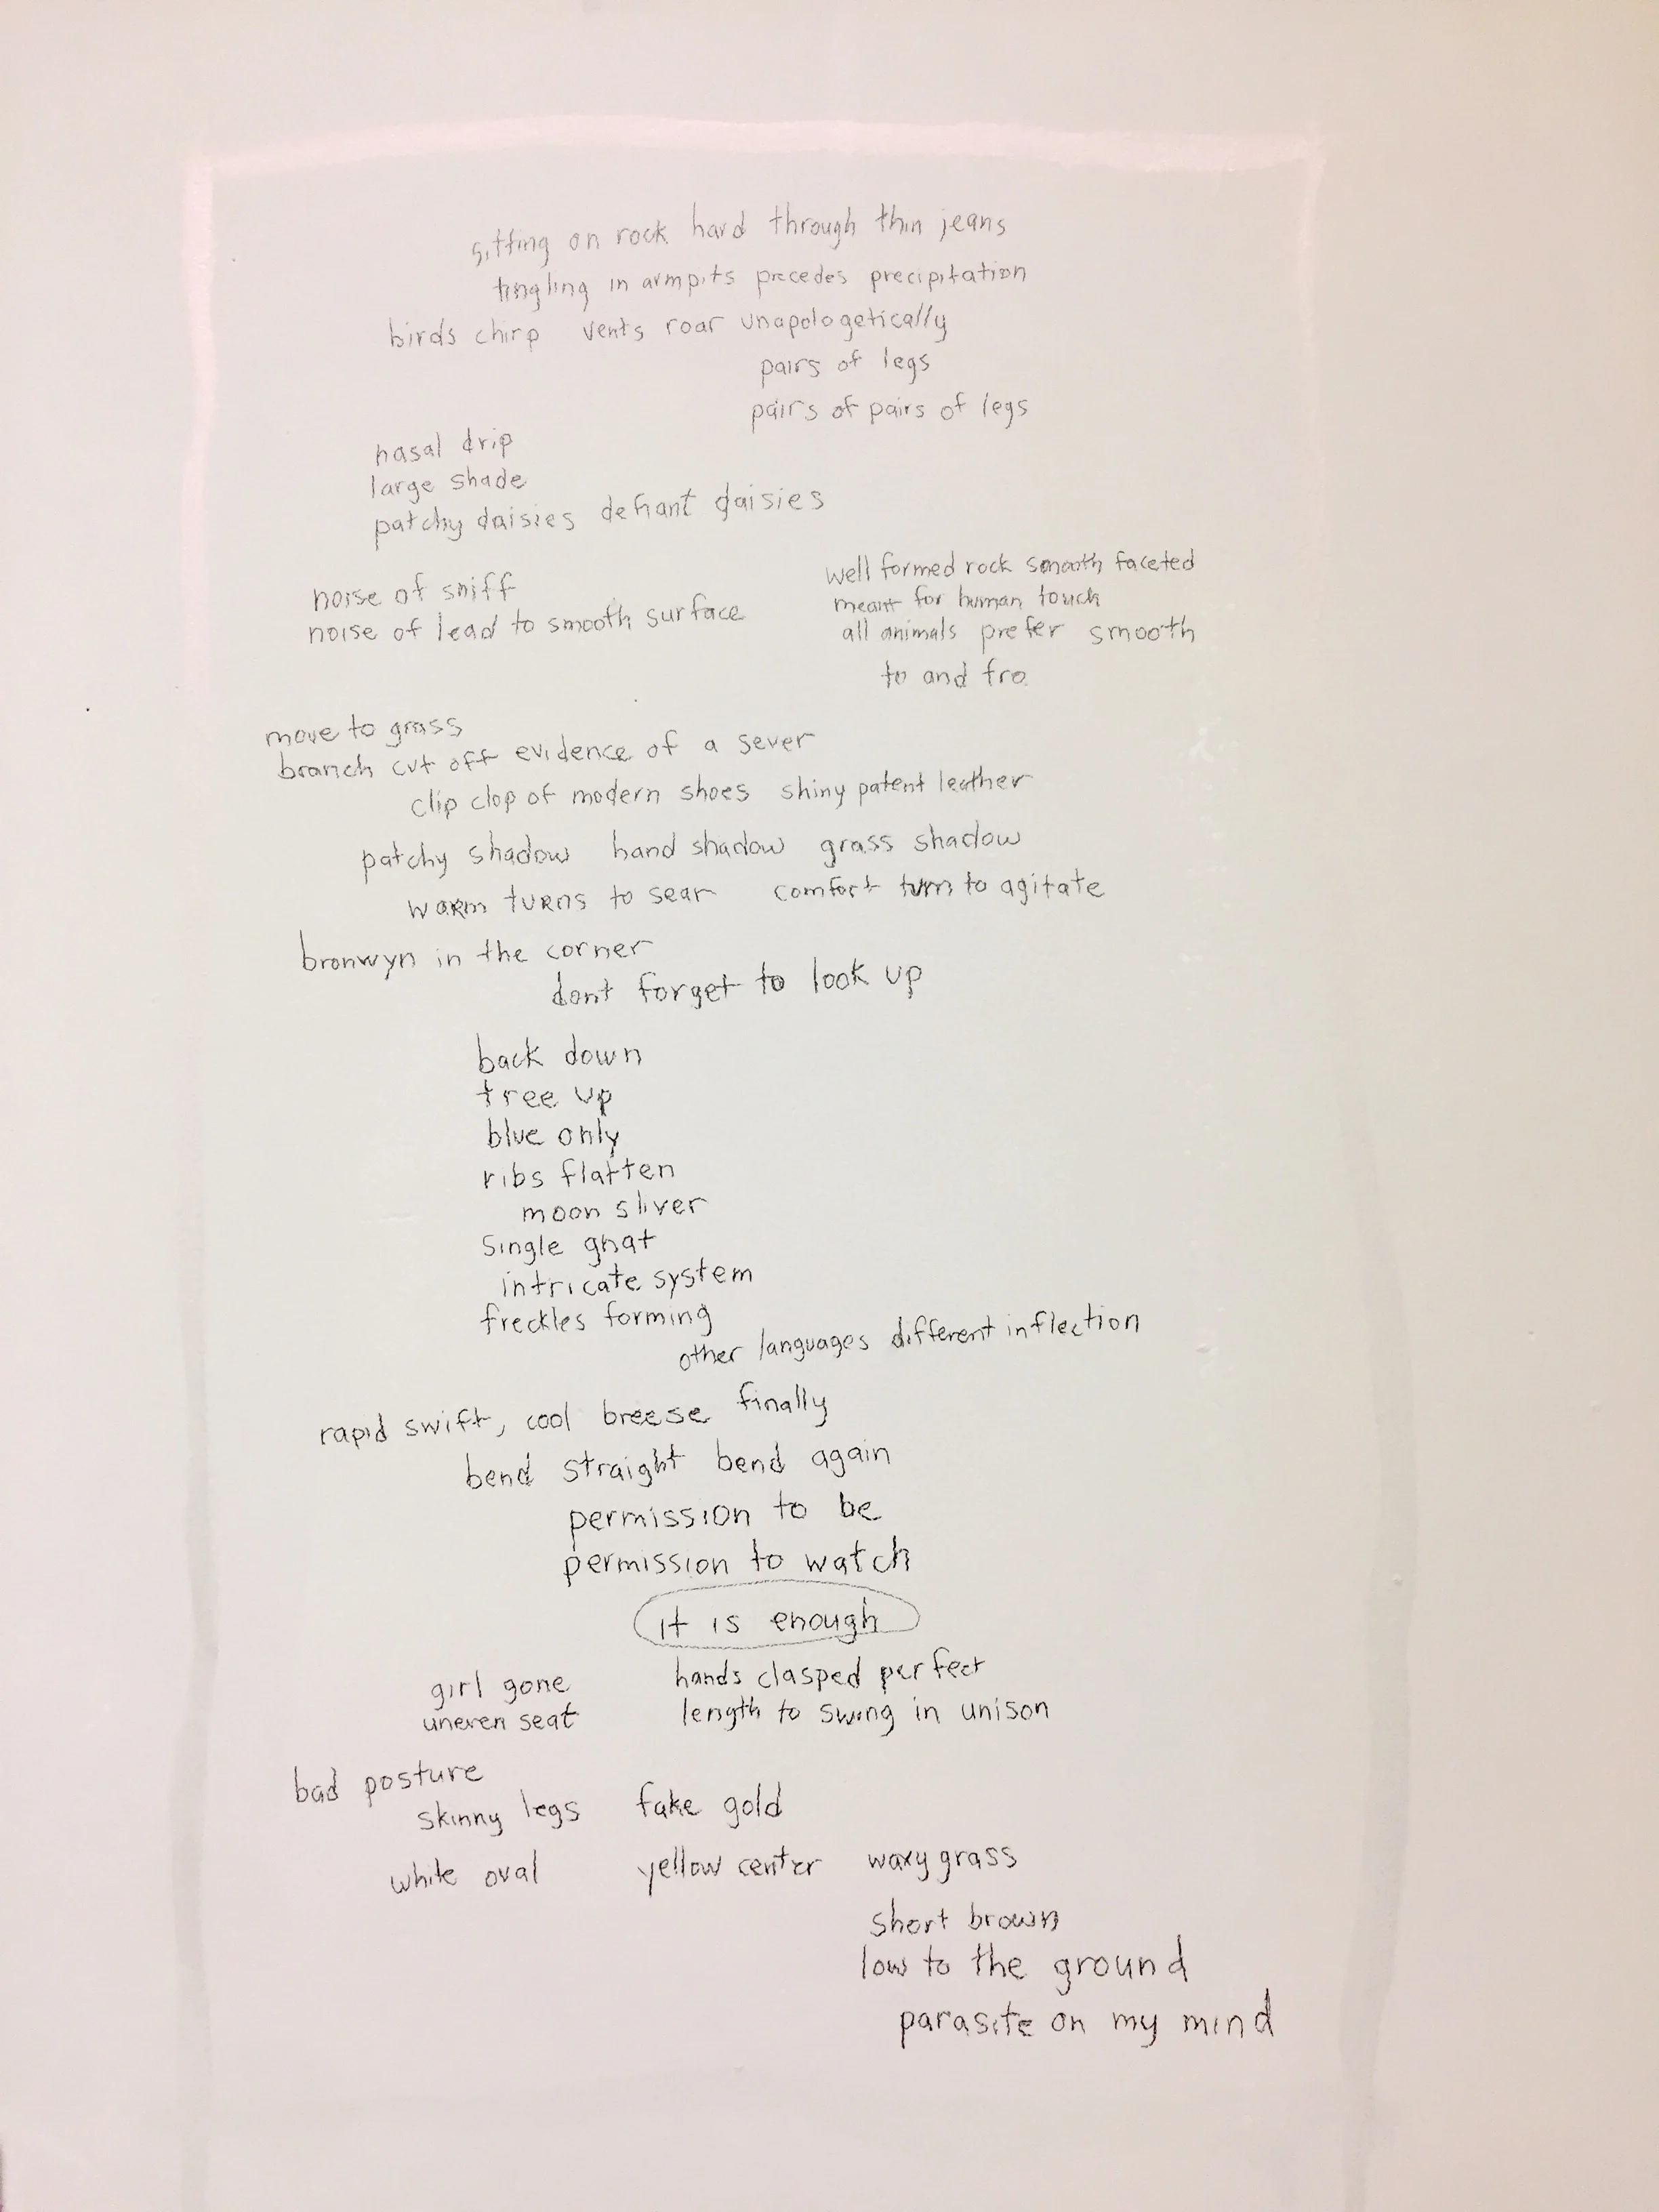 sitting on rock hard through thin jeans
tingling in armpits precedes precipitation
birds chirp vents roar unapologetically
pairs of legs
pairs of pairs of legs
nasal drip
large shade
patchy daisies defiant daisies
noise of sniff
noise of lead to smooth surface
well formed rock smooth faceted
meant for human touch
all animals prefer smooth
to and fro
move to grass
branch cut off evidence of a sever
clip clop of modern shoes shiny patent leather
patchy shadow hand shadow grass shadow
warm turns to sear comfort turn to agitate
bronwyn in the corner
dont forget to look up
back down
tree up
blue only
ribs flatten
moon sliver
single gnat
intricate system
freckles forming
other languages different inflection
rapid swift, cool breese finally
bend straight bend again
permission to be
permission to watch
it is enough
girl gone
uneven seat
hands clasped perfect
length to swing in unison
bad posture
skinny legs fake gold
white oval yellow center waxy grass
short brown
low to the ground
parasite on my mind